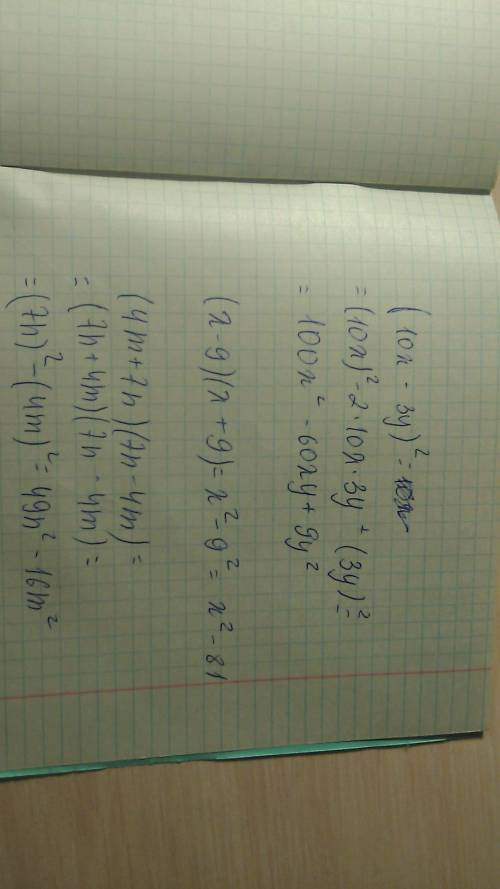 (10x - 3y)² =
= (10x)² - 2·10x·3y + (3y)² =
= 100x² - 60xy + 9y²
(x-9)(x+9) = x² - 9² = x² - 81
(4m+7n)(7n-4m) =
= (7n+4m)(7n-4m) =
= (7n)² - (4m)² = 49n² - 16m²